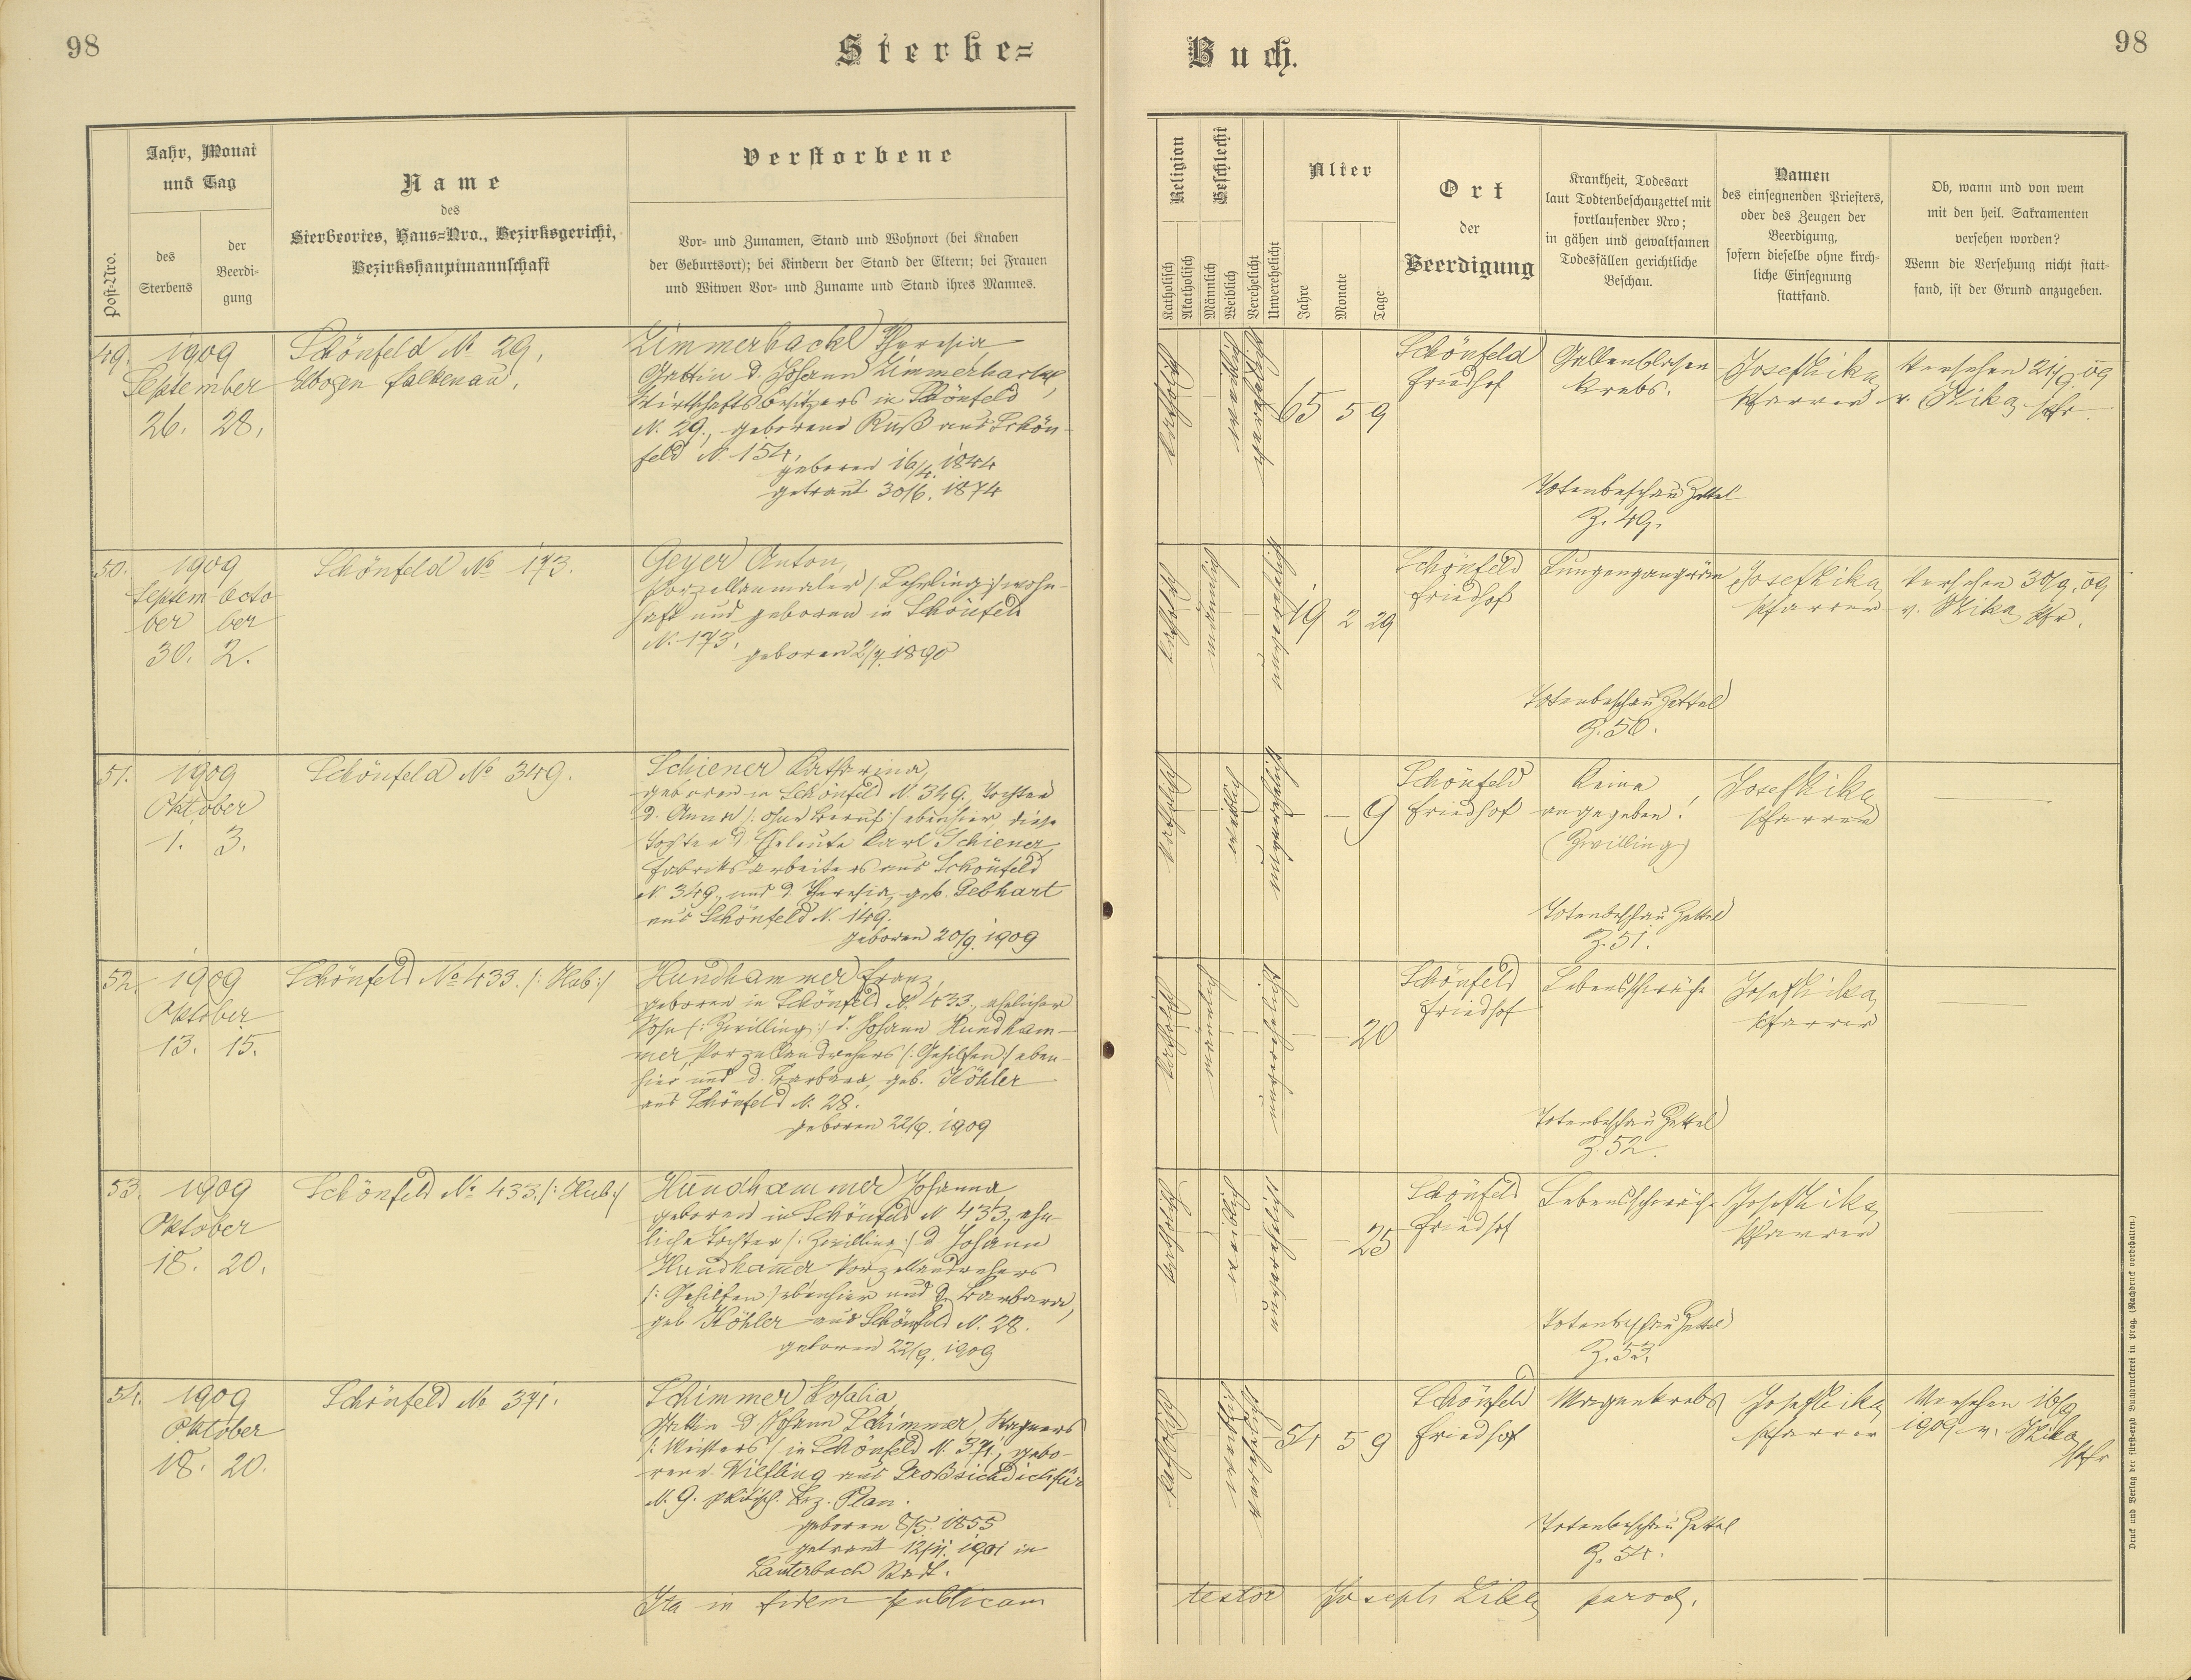 98
Sterbe=
Buch.
98
Post-Nro.
Jahr, Monat
und Tag
des
Sterbens
der
Beerdi-
gung
Name
des
Sterbeortes, Haus-Nro., Bezirksgericht,
Bezirkshauptmannschaft
Verstorbene
Vor- und Zunamen, Stand und Wohnort (bei Knaben
der Geburtsort); bei Kindern der Stand der Eltern; bei Frauen
und Witwen Vor- und Zuname und Stand ihres Mannes.
Religion
Katholisch
Akatholisch
Geschlecht
Männlich
Weiblich
Verehelicht
Unverehelicht
Alter
Jahre
Monate
Tage
Ort
der
Beerdigung
Krankheit, Todesart
laut Todtenbeschauzettel mit
fortlaufender Nro;
in gähen und gewaltsamen
Todesfällen gerichtliche
Beschau.
Namen
des einsegnenden Priesters,
oder des Zeugen der
Beerdigung,
sofern dieselbe ohne kirch-
liche Einsegnung
stattfand.
Ob, wann und von wem
mit den heil. Sakramenten
versehen worden?
Wenn die Versehung nicht statt-
fand, ist der Grund anzugeben.
49.
1909
September
26. 28.
Schönfeld No 29,
Elbogen Falkenau.
Zimmerhackl Theresia
Gattin d. Johann Zimmerhackl,
Wirtschaftsbesitzers in Schönfeld
N. 29., geborene Ruß aus Schön-
feld N. 154.
geboren 16/4. 1844
getraut 30/6. 1874
katholisch
weiblich
verehelicht
65 5 9
Schönfeld
Friedhof
Gallenblasen
krebs.
Totenbeschau Zettel
Z. 49.
Josef Kika
Pfarrer
Versehen 21/9. 09
v. Kika Pfr.
50.
1909
Septem- Octo
ber ber
30. 2.
Schönfeld No 173.
Geyer Anton,
Porzellanmaler /: Lehrling :/ wohn-
haft und geboren in Schönfeld
N. 173.
geboren 2/7. 1890
katholisch
männlich
unverehelicht
19 2 29
Schönfeld
Friedhof
Lungengangrän
Totenbeschau Zettel
Z. 50.
Josef Kika
Pfarrer
Versehen 30/9. 09
v. Kika Pfr.
51.
1909
Oktober
1. 3.
Schönfeld No 349.
Schiener Katharina,
geboren in Schönfeld N. 349. Tochter
d. Anna /: ohne Beruf :/ ebenhier, diese
Tochter d. Eheleute Karl Schiener,
Fabriksarbeiters aus Schönfeld
N. 349., und d. Theresia, geb. Gebhart
aus Schönfeld N. 149.
geboren 20/9. 1909
katholisch
weiblich
unverehelicht
— — 9
Schönfeld
Friedhof
Keine
angegeben!
(Zwilling)
Totenbeschau Zettel
Z. 51.
Josef Kika
Pfarrer
—
52.
1909
Oktober
13. 15.
Schönfeld No 433. /: Hub :/
Hundhammer Franz,
geboren in Schönfeld N. 433, ehelicher
Sohn /: Zwilling :/ d. Johann Hundham-
mer, Porzellandrehers /: Gehilfen :/ eben-
hier und d. Barbara, geb. Köhler
aus Schönfeld N. 28.
geboren 22/9. 1909
katholisch
männlich
unverehelicht
— — 20
Schönfeld
Friedhof
Lebensschwäche
Totenbeschau Zettel
Z. 52.
Josef Kika
Pfarrer
—
53.
1909
Oktober
18. 20.
Schönfeld No 433. /: Hub :/
Hundhammer Johanna
geboren in Schönfeld N. 433, ehe-
liche Tochter /: Zwilling :/ d. Johann
Hundhamer Porzellandrehers
/: Gehilfen :/ ebenhier und d. Barbara,
geb. Köhler aus Schönfeld N. 28.
geboren 22/9. 1909
katholisch
weiblich
unverehelicht
— — 25
Schönfeld
Friedhof
Lebensschwäche
Totenbeschau Zettel
Z. 53.
Josef Kika
Pfarrer
—
54.
1909
Oktober
18. 20.
Schönfeld No 371.
Schimmer Rosalia
Gattin d. Johann Schimmer, Wagners
/: Meisters :/ in Schönfeld N. 371, gebo-
rene Wilfling aus Großsichdichfür
N. 9. politisch. Bez. Plan.
geboren 8/5. 1855
getraut 12/11. 1901 in
Lauterbach Stadt.
katholisch
weiblich
verehelicht
54 5 9
Schönfeld
Friedhof
Magenkrebs
Totenbeschau Zettel
Z. 54.
Josef Kika
Pfarrer
Versehen 16/9
1909 v. Kika
Pfr
Ita in fidem publicam
testor Joseph paroch.
Druck und Verlag der fürst-erzb. Buchdruckerei in Prag. (Nachdruck vorbehalten.)